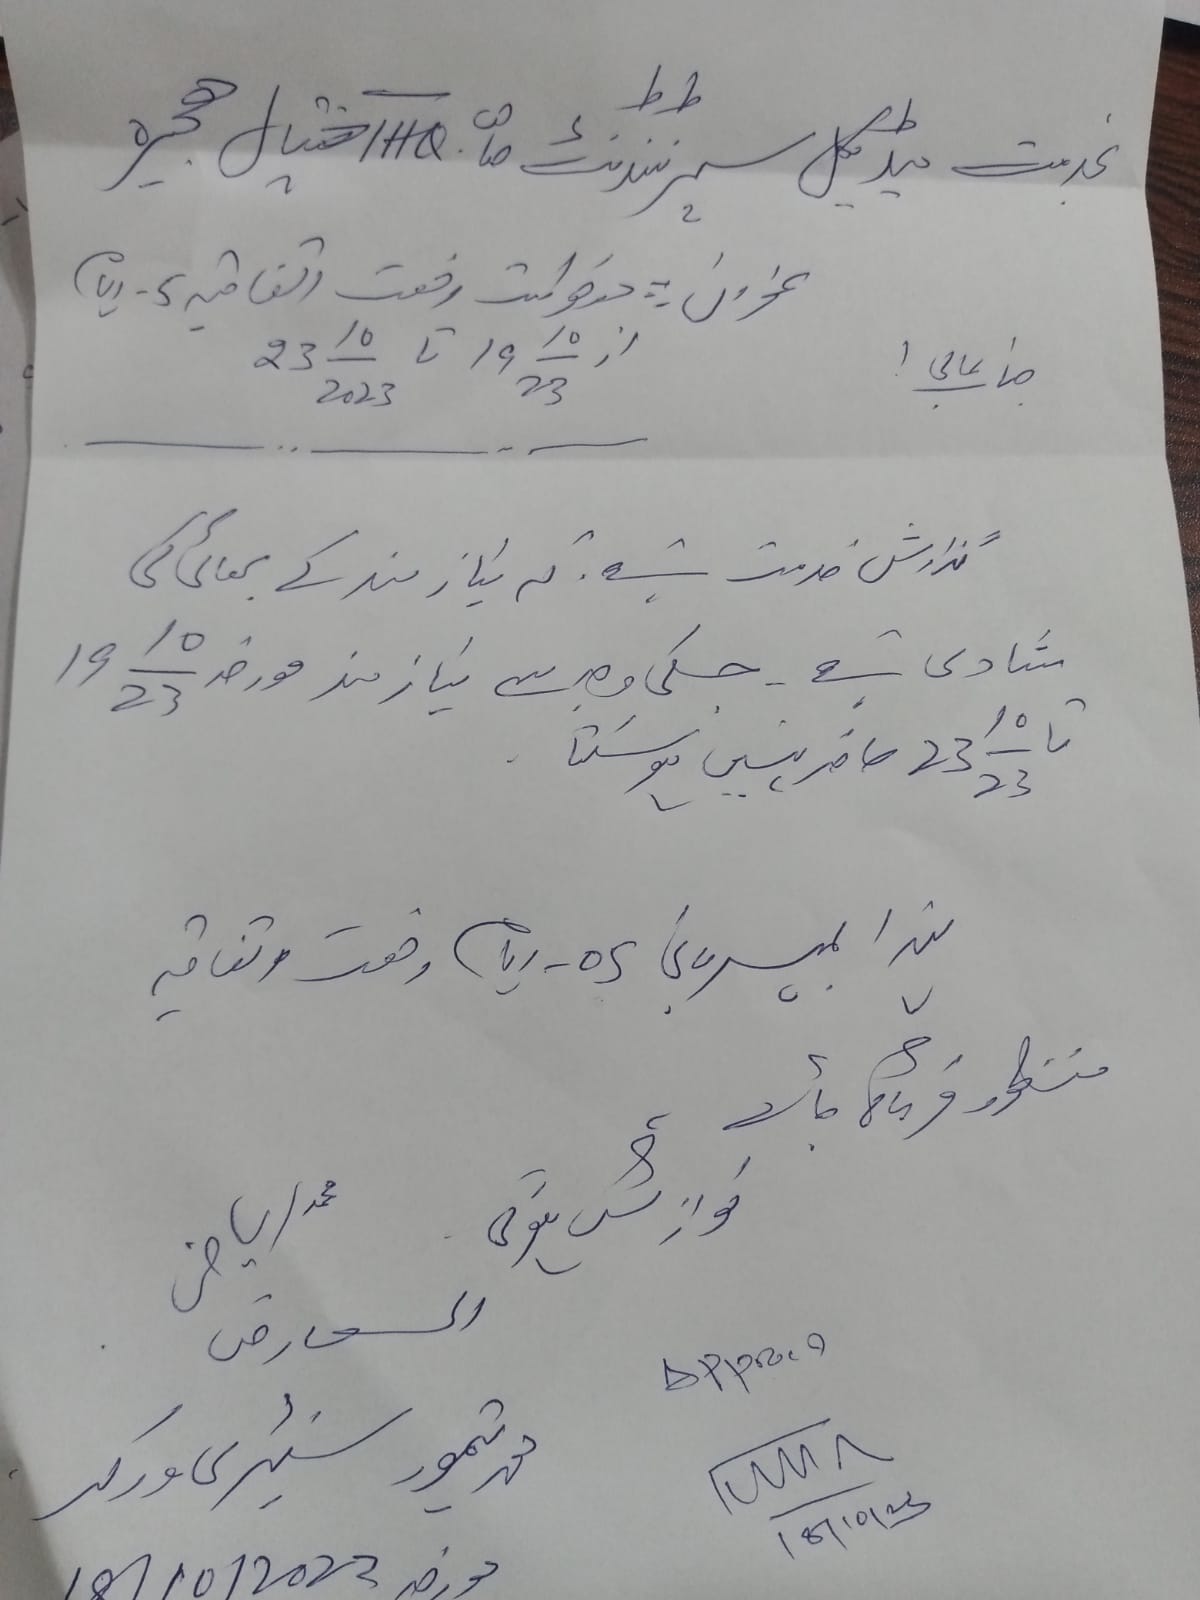 بخدمت میڈیکل سپرنٹنڈنٹ صاحب THQ ہسپتال ہجیرہ
عنوان :- درخواست رخصت اتفاقیہ 5-ایام
از 19 10/23 تا 23 10/2023
جناب عالی !
گذارش خدمت ہے کہ نیاز مند کے بھائی کی
شادی ہے - جسکی وجہ سے نیاز مند مورخہ 19 10/23
تا 23 10/23 حاضر نہیں ہو سکتا .
لہذا بمہربانی 05-ایام رخصت اتفاقیہ
منظور فرمائی جائے
نوازش ہو گی .
محمد ریاض
العارض
محمد تیمور سینٹری ورکر
مورخہ 18/10/2023
Approved
18/10/23